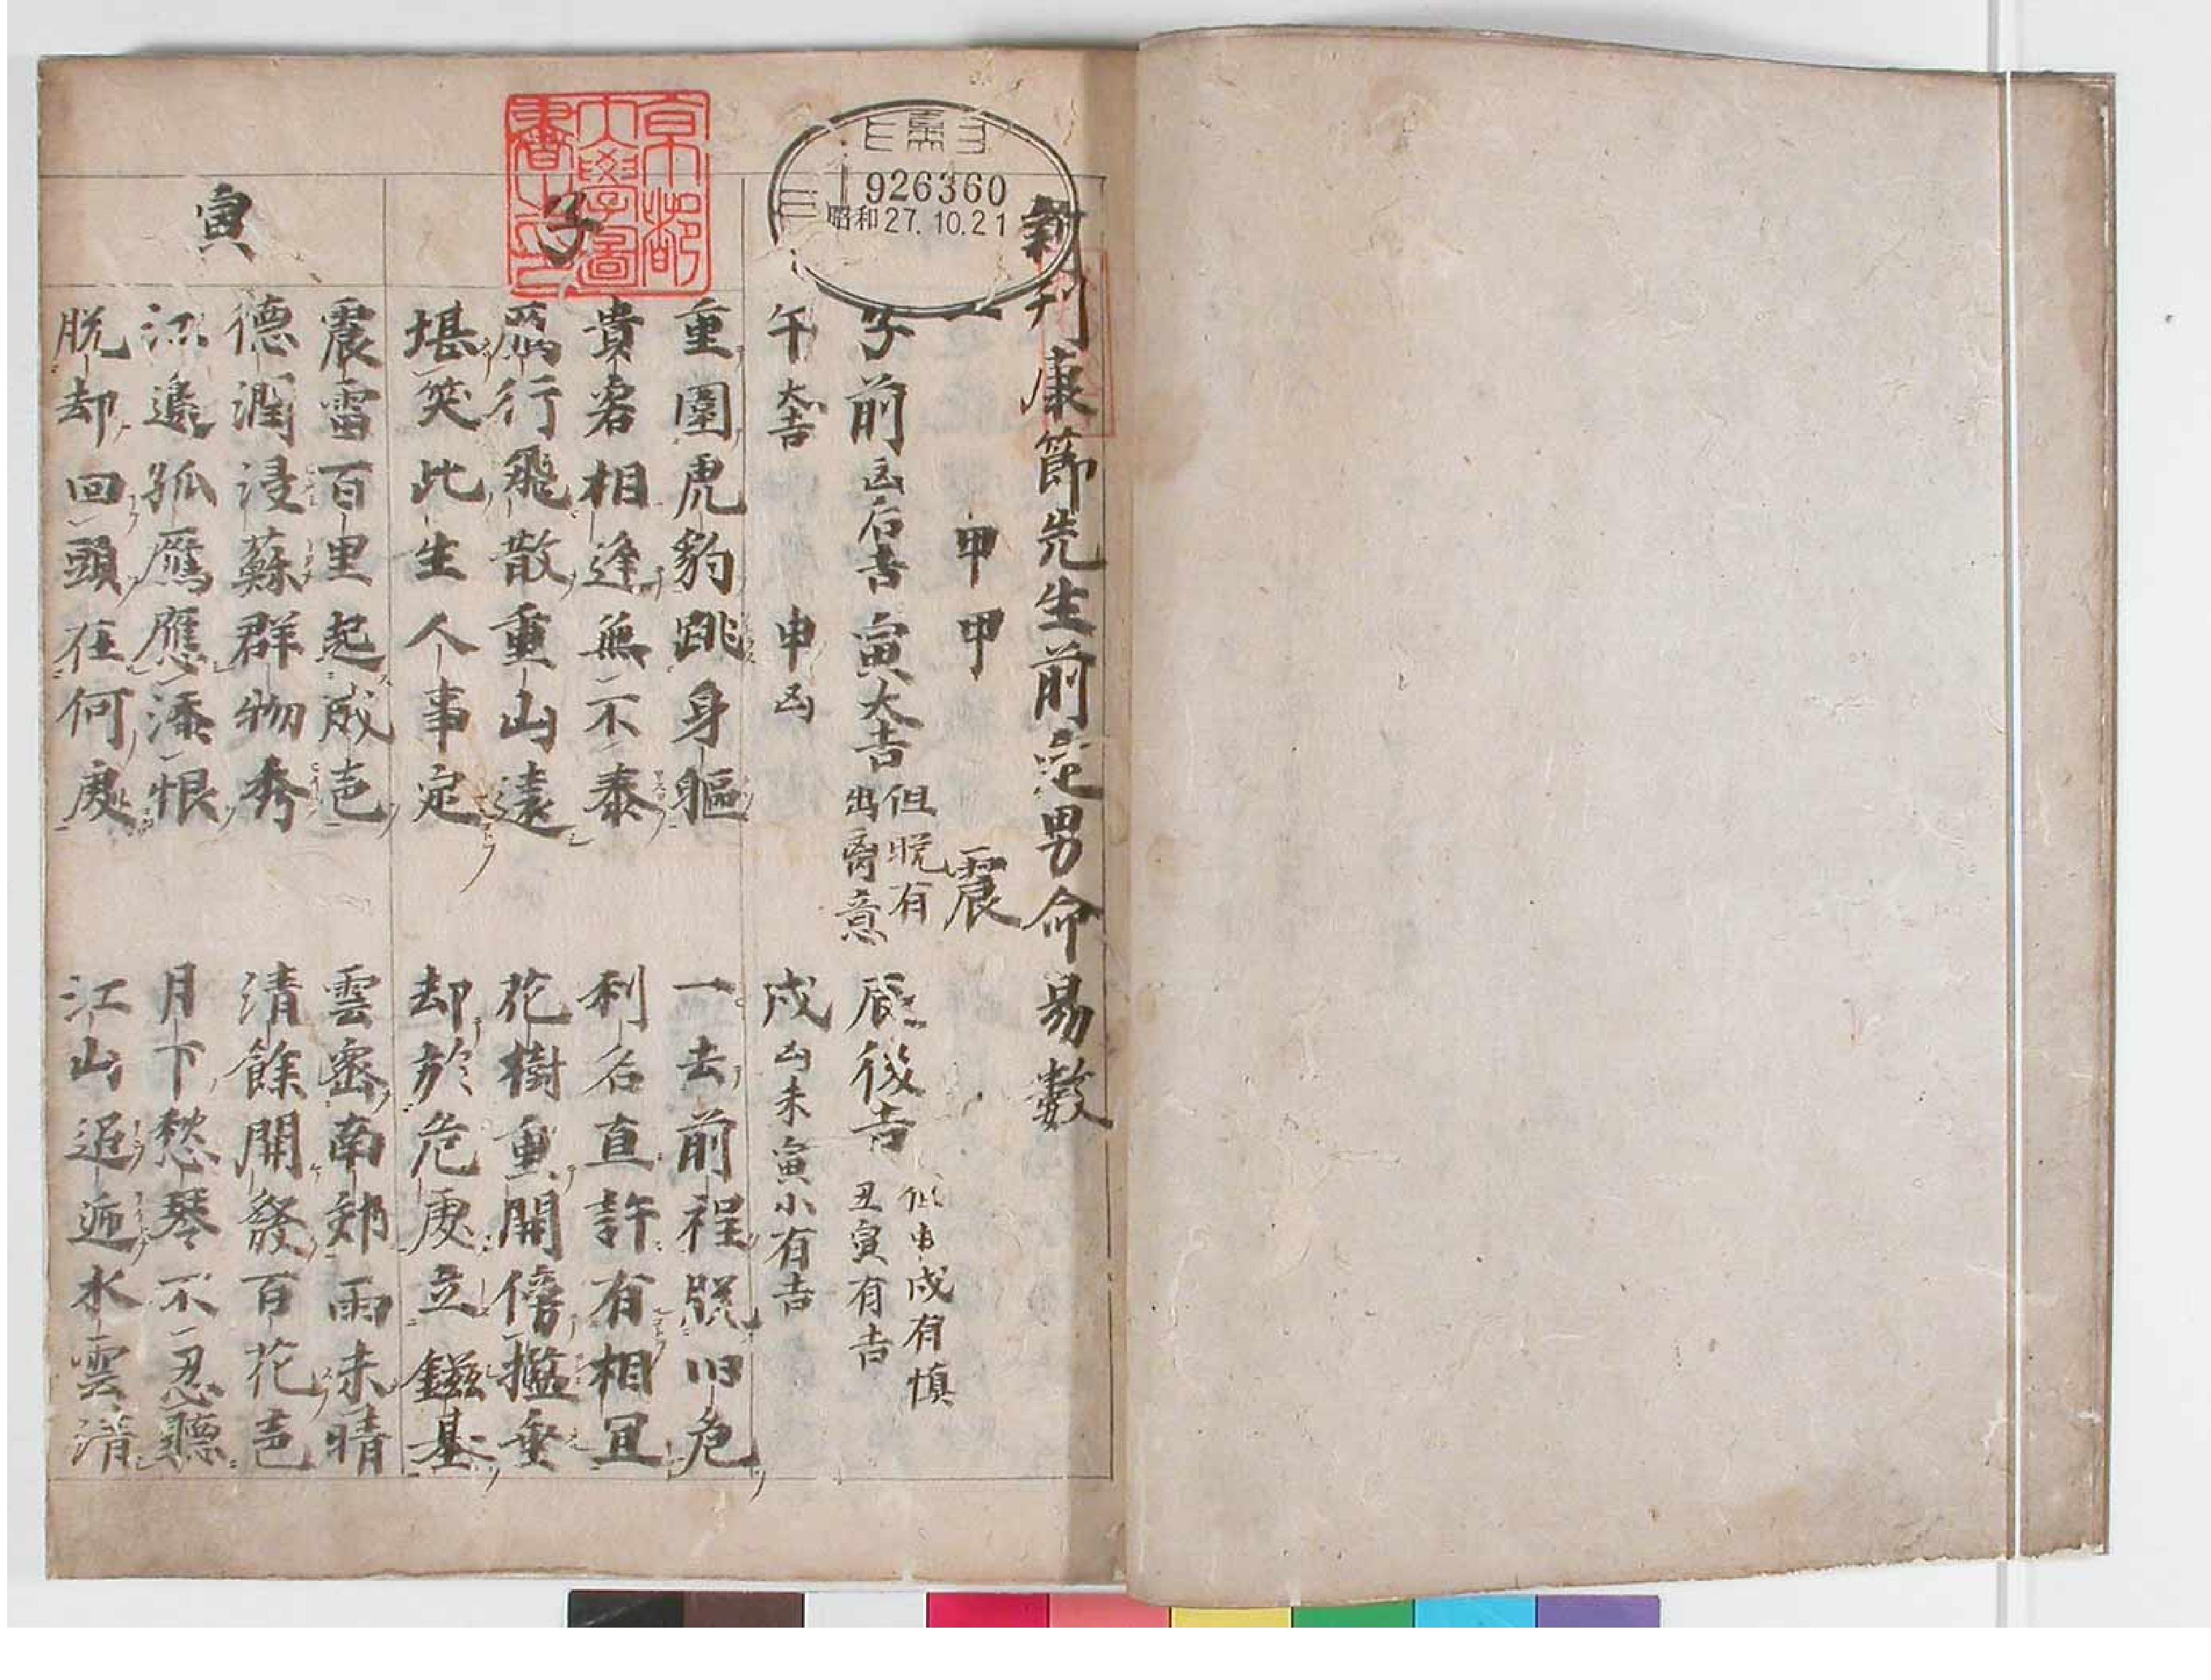 新刊康節先生前定男命易数
一 甲甲 震
子前凶后吉 寅大吉 但晩有出奇意 辰後吉 但申戌有慎 丑寅有吉
午大吉 申凶 戌凶未寅小有吉
子
重圍虎豹跳身軀 一去前程脱旧危
貴君相逢無不泰 利名直許有相宜
鴈行飛散重山遠 花樹重開傍檻垂
堪笑此生人事定 却於危處立鎡基
寅
震雷百里起威声 雲密南郊雨未晴
德潤浸蘇群物秀 清餘開發百花声
江邊孤鴈應添恨 月下愁琴不忍聽
脱却回頭在何處 江山迢逓水雲清
京都大學圖書之印
1926360
昭和27.10.21